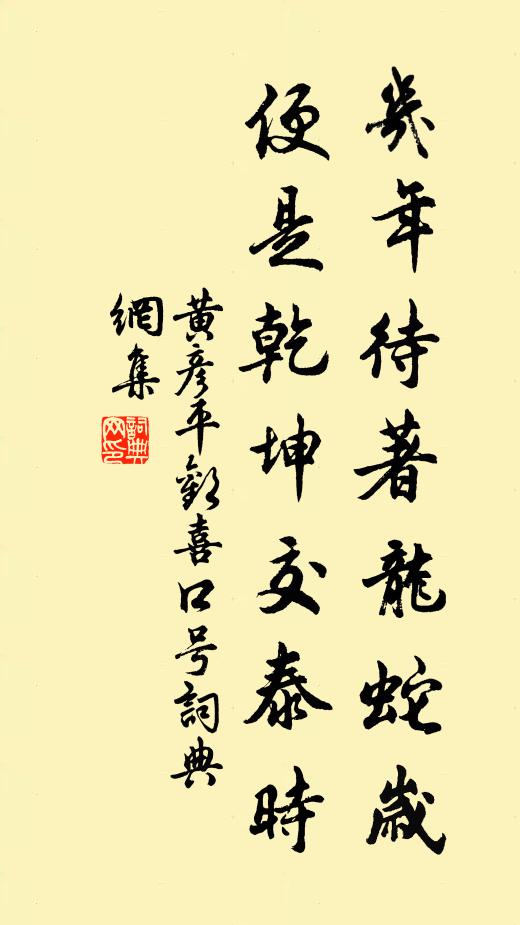 幾年待著龍蛇歲
便是乾坤交泰時
黃彥平歡喜口号詞典
網集
詞典网印